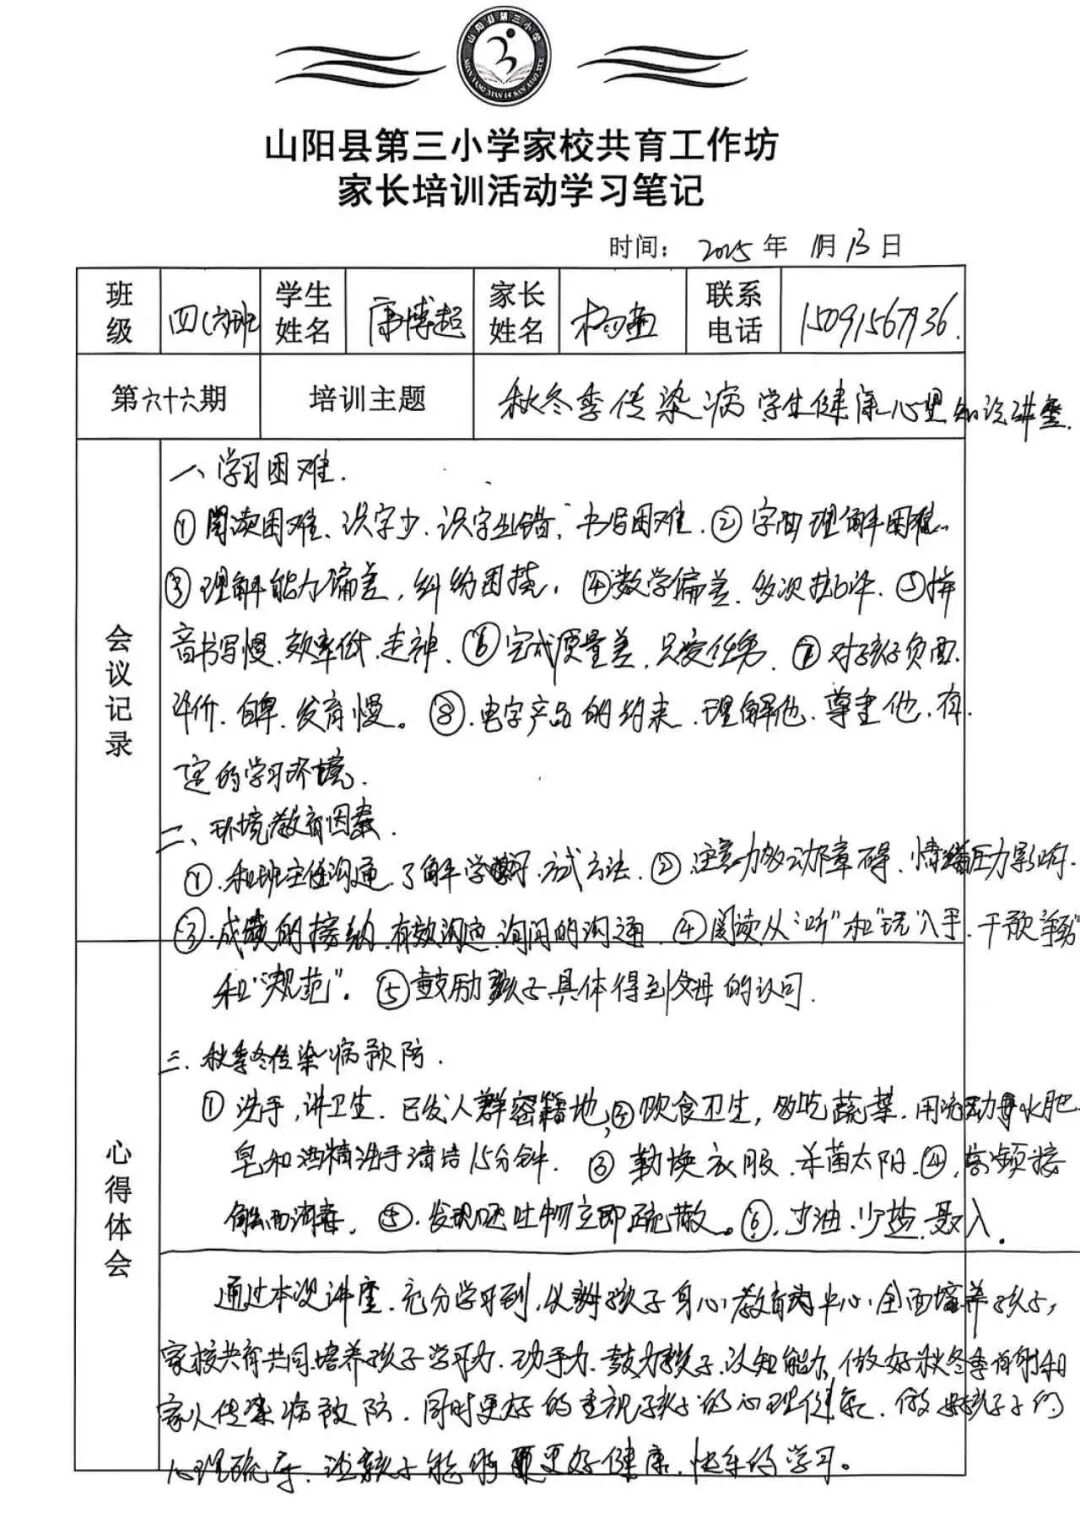 山阳县第三小学
山阳县第三小学家校共育工作坊
家长培训活动学习笔记
时间: 2025 年 11月 13 日
班级 四(六)班 学生姓名 唐博超 家长姓名 杨 联系电话
第六十六期 培训主题 秋冬季传染病 学生健康心理知识讲座.
会议记录
一、学习困难.
①阅读困难、识字少.识字出错,书写困难.②字面理解困难.
③理解能力偏差,纠纷困扰,④数学偏差.多次批评.⑤拼
音书写慢.效率低.走神.⑥完成质量差.只爱任务.⑦对孩子负面
评价.自卑.发育慢。⑧.电子产品的约束.理解他.尊重他.有
定的学习环境.
二、环境教育因素.
①.和班主任沟通.了解学习方式方法.②.注意力多动障碍.情绪压力影响.
③.成绩的接纳.有效沟通.询问的沟通.④阅读从“听”和“说”入手.干歌
和“规范”。⑤鼓励孩子具体得到父母的认可.
心得体会
三.秋季冬传染病预防.
①洗手,讲卫生.已发人群密籍地,②饮食卫生,多吃蔬菜.用流动 水肥
皂和酒精洗手清洁15分钟.③勤换衣服.杀菌太阳.④.常频接
触面消毒.⑤.发现呕吐物立即疏散。⑥.少油.少盐.
通过本次讲座.充分学习到.以 孩子身心教育为中心.全面培养孩子,
家校共育共同培养孩子学习力.动手力.鼓力孩子.认知能力.做好秋冬季 和
家人传染病预防.同时更好的重视孩子的心理健康.做好孩子的
心理疏导.让孩子能够更更好健康.快乐的学习。